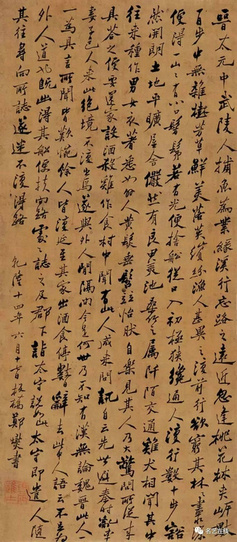 晉太元中武陵人捕魚為業緣溪行忘路之遠近忽逢桃花林夾岸
百步中無雜樹芳草鮮美落英繽紛漁人甚異之復前行欲窮其林林盡
便得一山山有小口髣髴若有光便捨船從口入初極狹纔通人復行數十步豁
然開朗土地平曠屋舍儼然有良田美池桑竹之屬阡陌交通雞犬相聞其中
往來種作男女衣著悉如外人黃髮垂髫怡然自樂見漁人乃大驚問所從來
具答之便要還家設酒殺雞作食村中聞有此人咸來問訊自云先世避秦時亂率
妻子邑人來此絕境不復出焉遂與外人間隔問今是何世乃不知有漢無論魏晉此人一
一為具言所聞皆歎惋餘人皆復延至其家出酒食停數日辭去此中人語云不足為
外人道也既出得其船便扶向路處處誌之及郡下詣太守說如此太守即遣人隨
其往尋向所誌遂迷不復得路 乾隆十四年六月 板橋鄭燮書